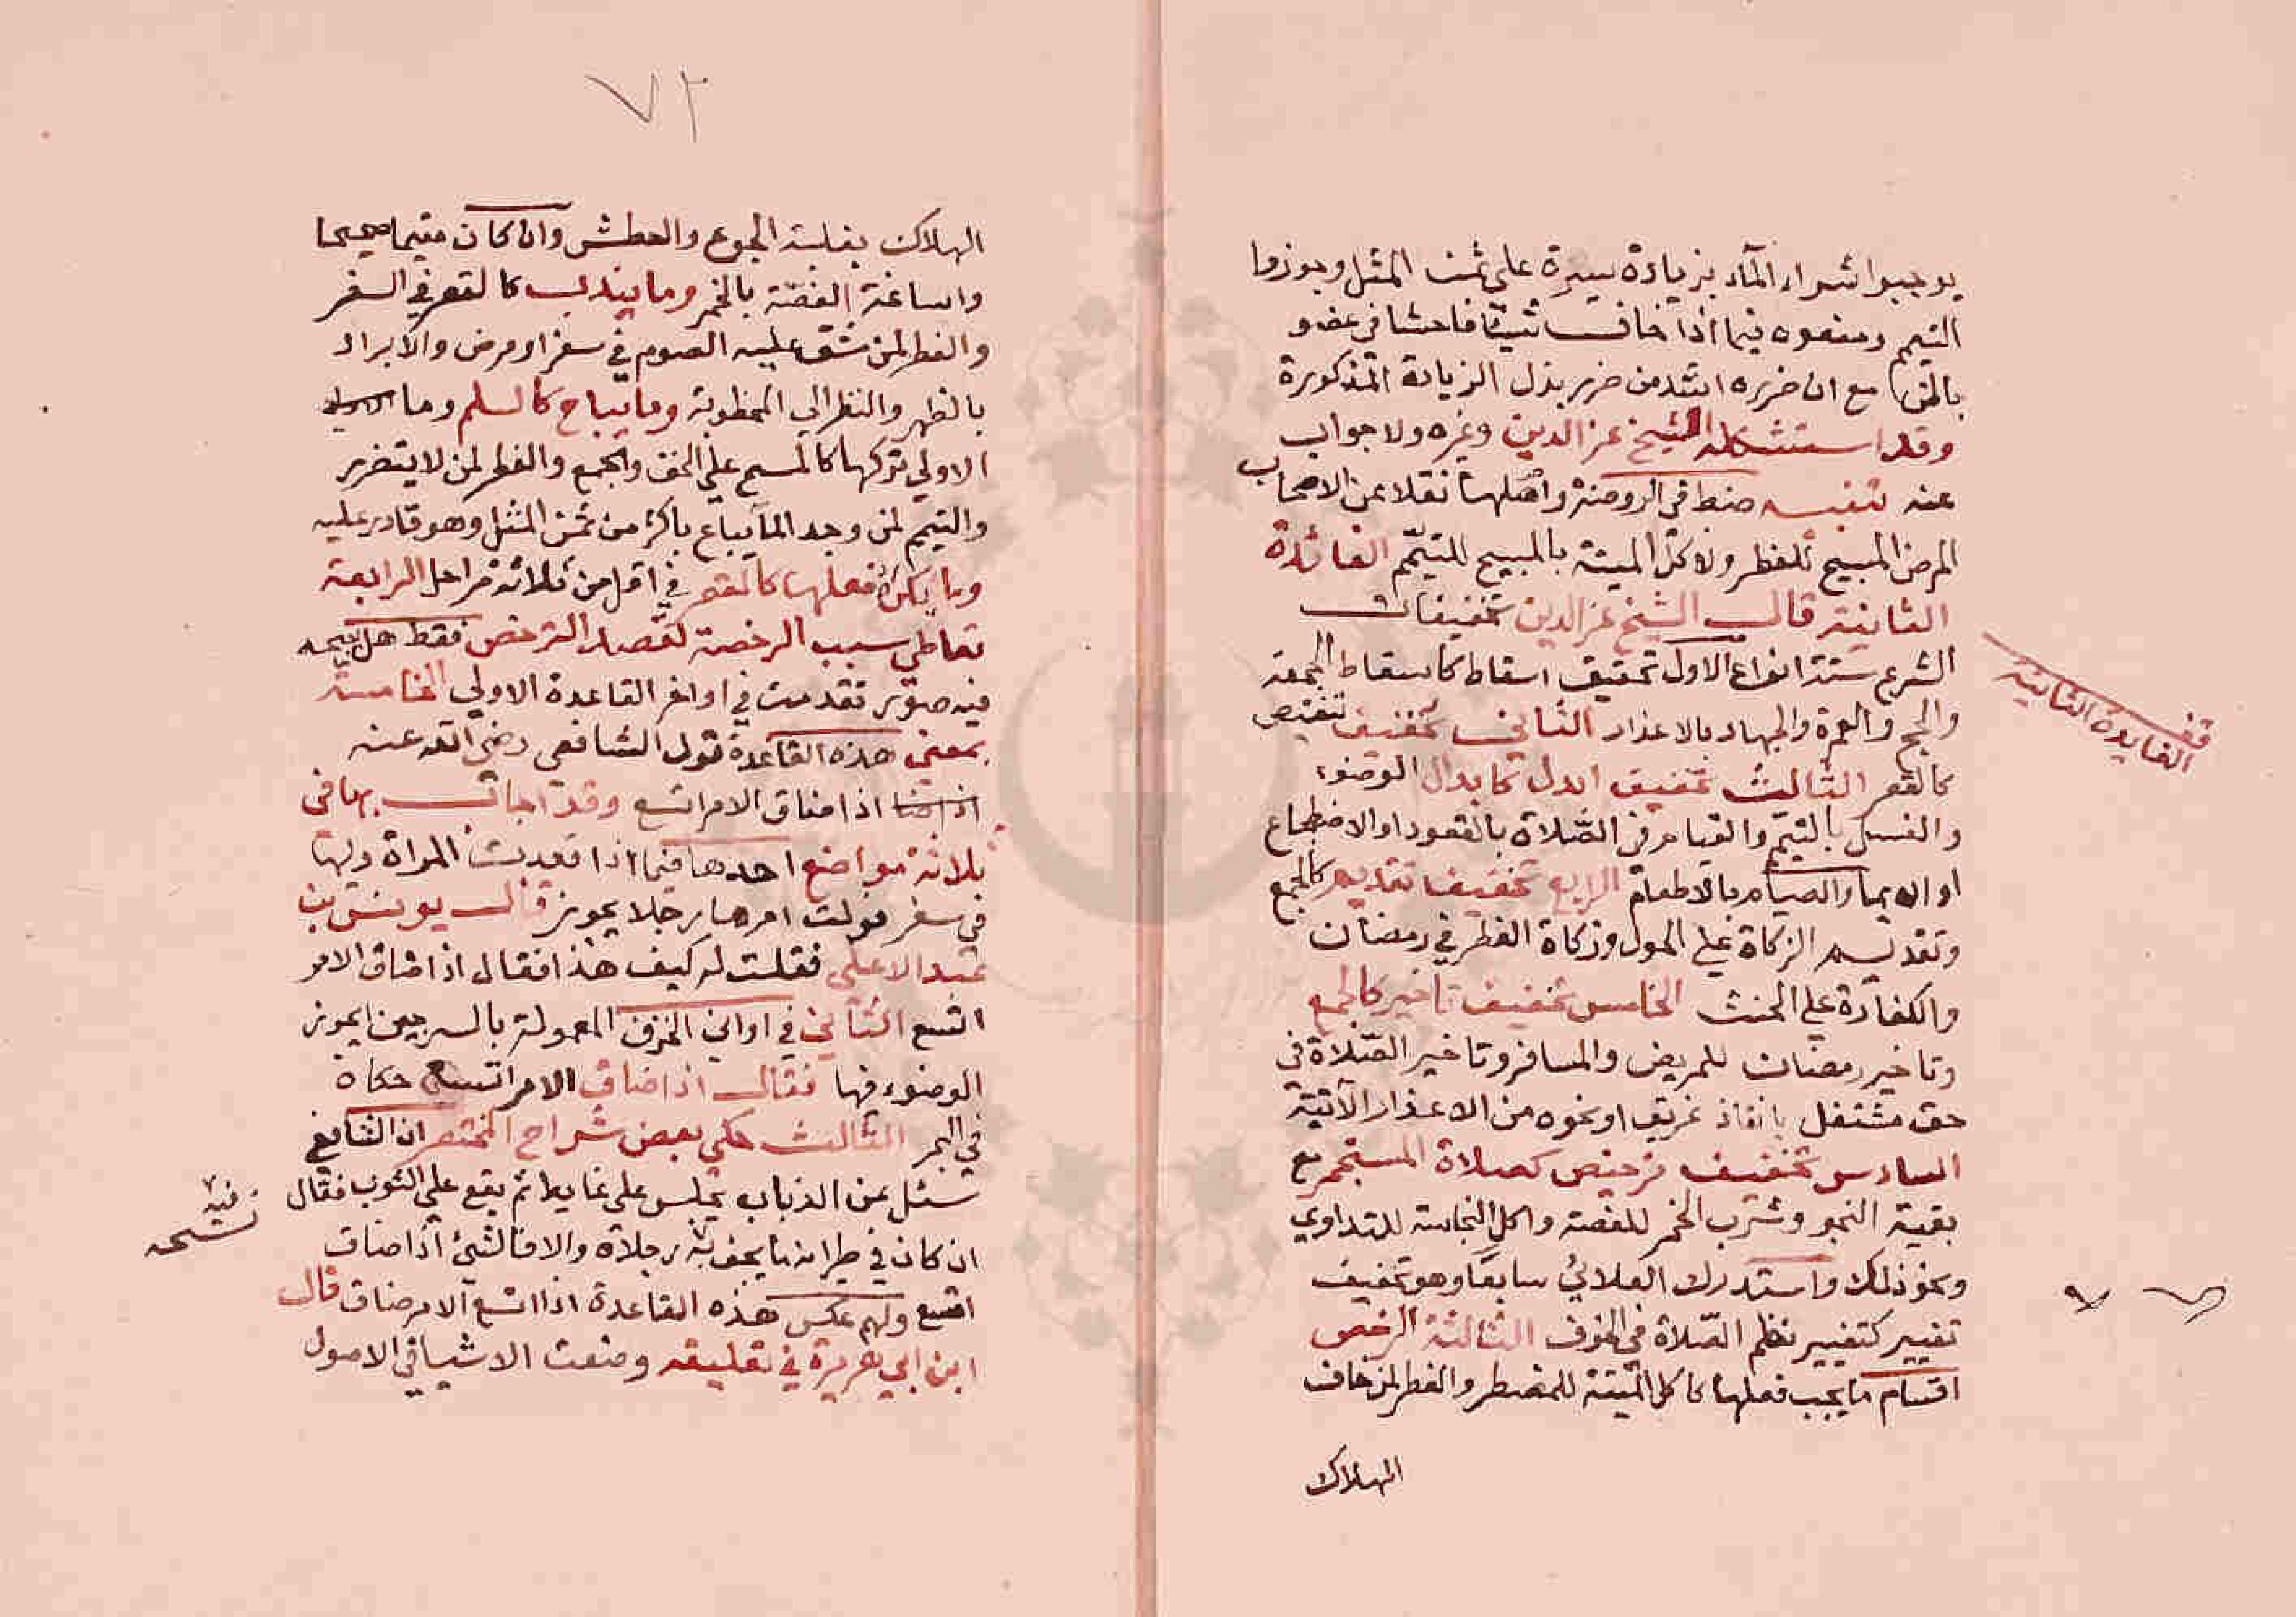 يوجبوا شراء المآء بزيادة يسيرة على ثمن المثل وجوزوا
التيمم ومنعوه فيما اذا خاف شيئا فاحشا في عضو
باطن مع ان ضرره اشد من ضرر بذل الزيادة المذكورة
وقد استشكله الشيخ عز الدين وغيره ولا جواب
عنه تنبيه ضبط في الروضة واصلها نقلا عن الاصحاب
المرض المبيح للفطر ولاكل الميتة بالمبيح للتيمم الفائدة
الثانية قال الشيخ عز الدين تخفيفات
الشرع ستة انواع الاول تخفيف اسقاط كاسقاط الجمعة
والحج والعمرة والجهاد بالاعذار الثاني تخفيف تنقيص
كالقصر الثالث تخفيف ابدال كابدال الوضوء
والغسل بالتيمم والقيام في الصلاة بالقعود او الاضطجاع
او الايما والصيام بالاطعام الرابع تخفيف تقديم كالجمع
وتقديم الزكاة علي الحول وزكاة الفطر في رمضان
والكفارة علي الحنث الخامس تخفيف تاخير كالجمع
وتاخير رمضان للمريض والمسافر وتاخير الصلاة في
حق مشتغل بانقاذ غريق او نحوه من الاعذار الآتية
السادس تخفيف ترخيص كصلاة المستجمر مع
بقية النجو وشرب الخمر للغصة واكل النجاسة للتداوي
ونحو ذلك واستدرك العلائي سابعا وهو تخفيف
تغيير كتغيير نظم الصلاة في الخوف الثالثة الرخص
اقسام ما يجب فعلها كاكل الميتة للمضطر والفطر لمن خاف
الهلاك
قف
الفايدة الثانية
٧٢
الهلاك بغلبة الجوع والعطش وان كان مقيما صحيحا
واساغة الغصة بالخمر وما يندب كالقصر في السفر
والفطر لمن شق عليه الصوم في سفر او مرض والابراد
بالظهر والنظر الى المخطوبة وما يباح كالسلم وما
الاولي تركها كالمسح علي الخف والجمع والفطر لمن لا يتضرر
والتيمم لمن وجد المآ يباع باكثر من ثمن المثل وهو قادر عليه
وما يكره فعلها كالقصر في اقل من ثلاثة مراحل الرابعة
تعاطي سبب الرخصة لقصد الترخص فقط هل يبيحه
فيه صور تقدمت في اواخر القاعدة الاولي الخامسة
بمعني هذه القاعدة قول الشافعي رضي الله عنه
اذا ضاق الامر اتسع وقد اجاب بها في
ثلاثة مواضع احدها فيما اذا فقدت المراة وليها
في سفر فولت امرها رجلا يجوز قال يونس بن
عبد الاعلى فقلت له كيف هذا فقال اذا ضاق الامر
اتسع الثاني في اواني الخزف المعمولة بالسرجين ايجوز
الوضوء فيها فقال اذا ضاق الامر اتسع حكاه
في البحر الثالث حكى بعض شراح المختصر ان الشافعي
سئل عن الذباب يجلس على غايط ثم يقع على الثوب فقال
ان كان في طيرانه ما يجف به رجلاه والا فالشئ اذا ضاق
اتسع ولهم عكس هذه القاعدة اذا اتسع الامر ضاق قال
ابن ابي هريرة في تعليقه وضعت الاشيا في الاصول
فيه
نسخه